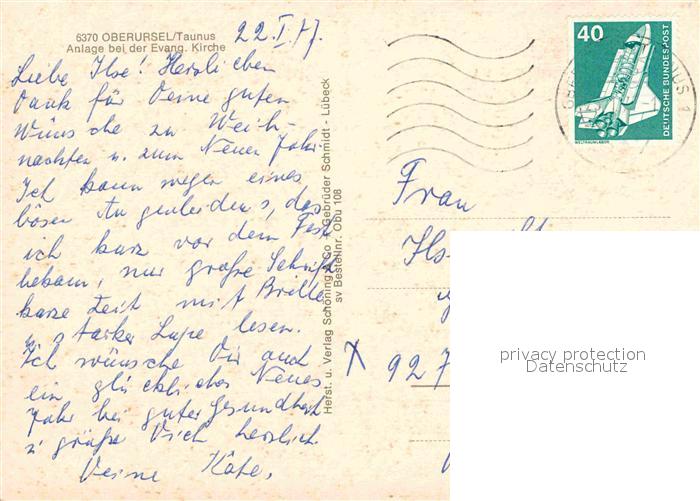 6370 OBERURSEL/Taunus
Anlage bei der Evang. Kirche
22.I.77.
Liebe Ilse! Herzlichen
Dank für Deine guten
Wünsche zu Weih-
nachten u. zum Neuen Jahr.
Ich kann wegen eines
bösen Augenleidens, das
ich kurz vor dem Fest
bekam, nur große Schrift
kurze Zeit mit Brille
u. starker Lupe lesen.
Ich wünsche Dir auch
ein glückliches Neues
Jahr bei guter Gesundheit
u. grüße Dich herzlich.
Deine Käte.
Herst. u. Verlag Schöning & Co · Gebrüder Schmidt - Lübeck
sv Bestellnr. Obu 108
40
DEUTSCHE BUNDESPOST
WELTRAUMLABOR
Frau
927
privacy protection
Datenschutz